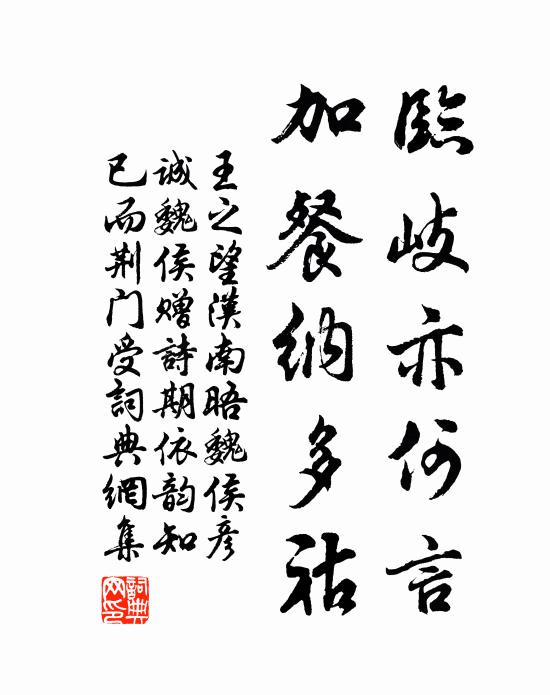 臨岐亦何言
加餐纳多祜
王之望漢南晤魏侯彦
诚魏侯赠詩期依韵知
已而荆门受詞典網集
詞典网印